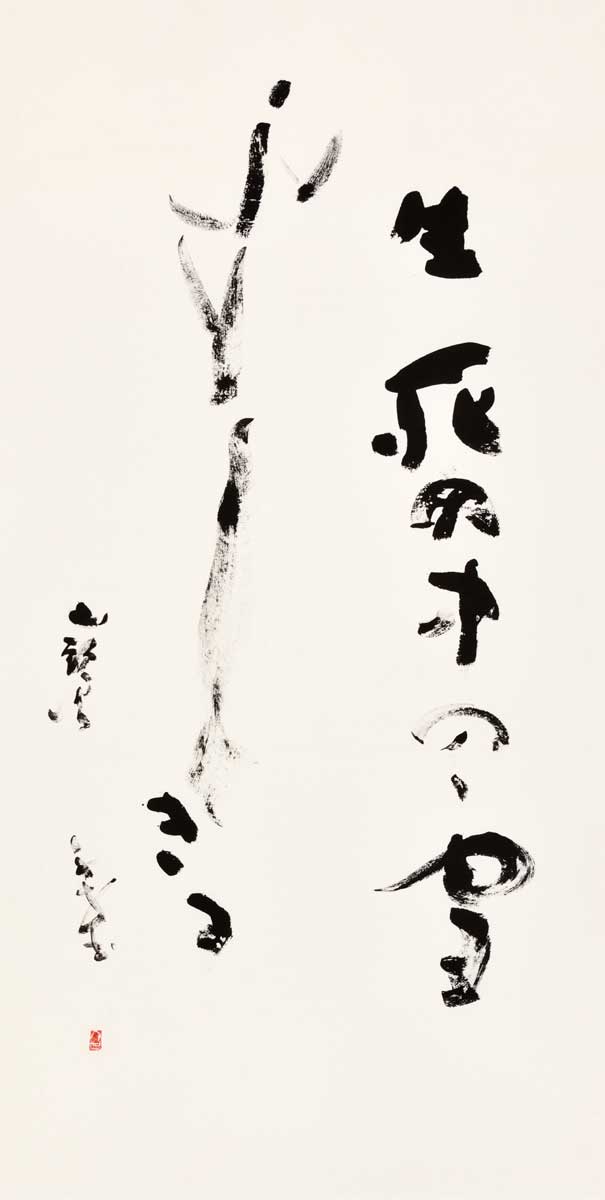 生死の中の雪
ふりしきる
山頭火